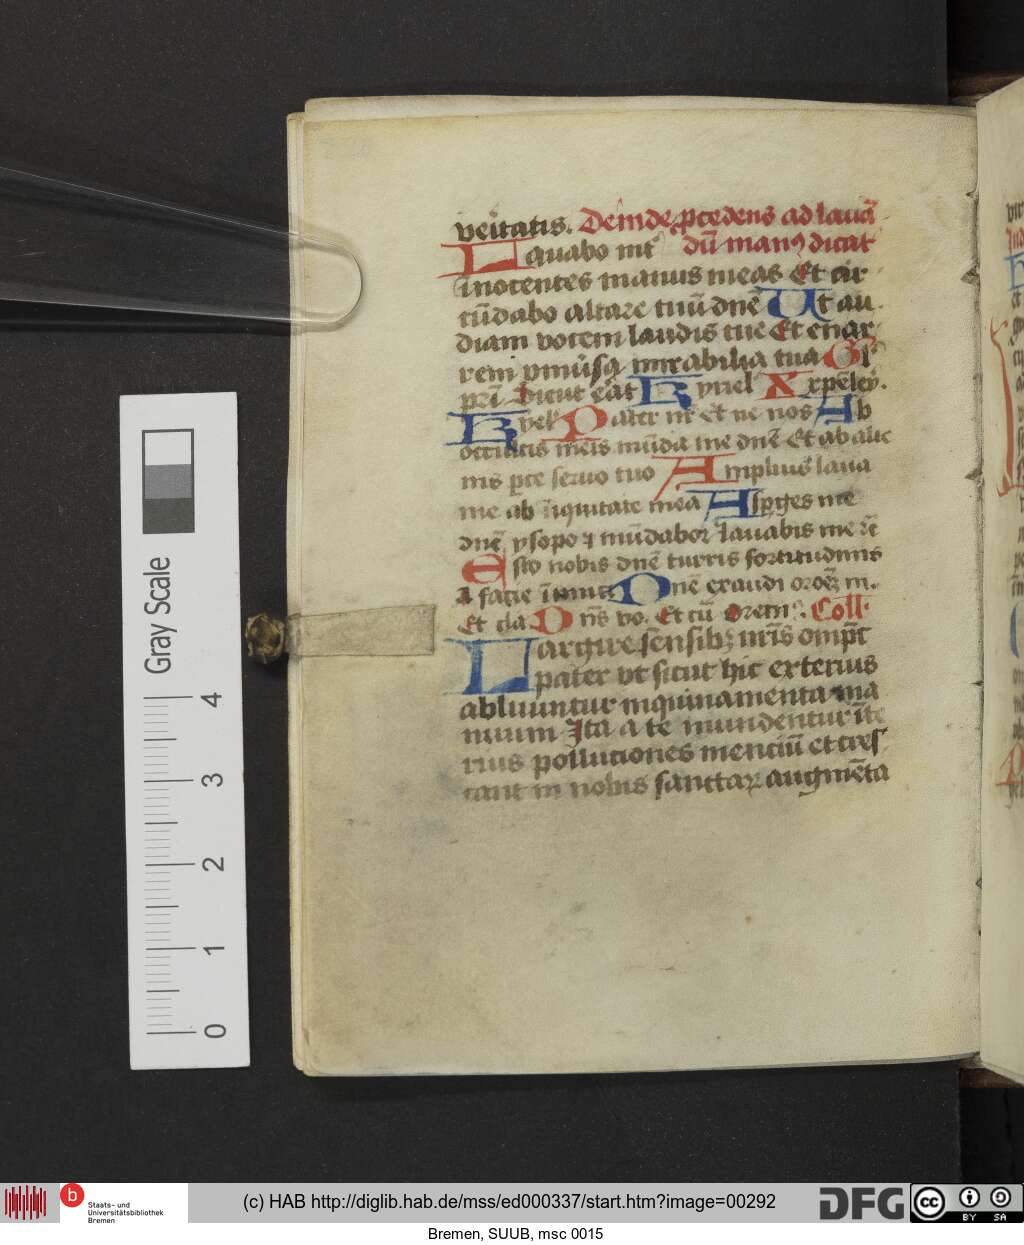 veritatis. Deinde p̱cedens ad lauā
Lauabo int̾ dū manꝰ dicat
inocentes manus meas Et cir
cūdabo altare tuū dnē Ut au.
diam vocem laudis tue Et enar
rem vniūsa mirabilia tua Gl̾
pr̄i Sicut erat Kyriel̾ Xrp̄eley.
Kyel̾ Pater nr̄ Et ne nos Ab
occultis meis mūda me dnē Et ab alie
nis ꝑce seruo tuo Amplius laua
me ab īiquitate mea Asꝑges me
dnē ysopo ⁊ mūdabor lauabis me
Esto nobis dnē turris fortitudinis
A facie īimici Dnē exaudi oroēꝫ m.
Et cla Dn̄s vo. Et cū Orem⁹. Coll.
Largire sēnsibꝫ nr̄is omp̄t
pater vt sicut hic exterius
abluuntur inquinamenta ma
nuum Ita a te mundentur īte
rius pollutiones mentiū et cres
cant in nobis sanctaꝝ augmēta
Gray Scale
4
3
2
1
0
b Staats- und
Universitätsbibliothek
Bremen
(c) HAB http://diglib.hab.de/mss/ed000337/start.htm?image=00292
DFG
cc BY SA
Bremen, SUUB, msc 0015